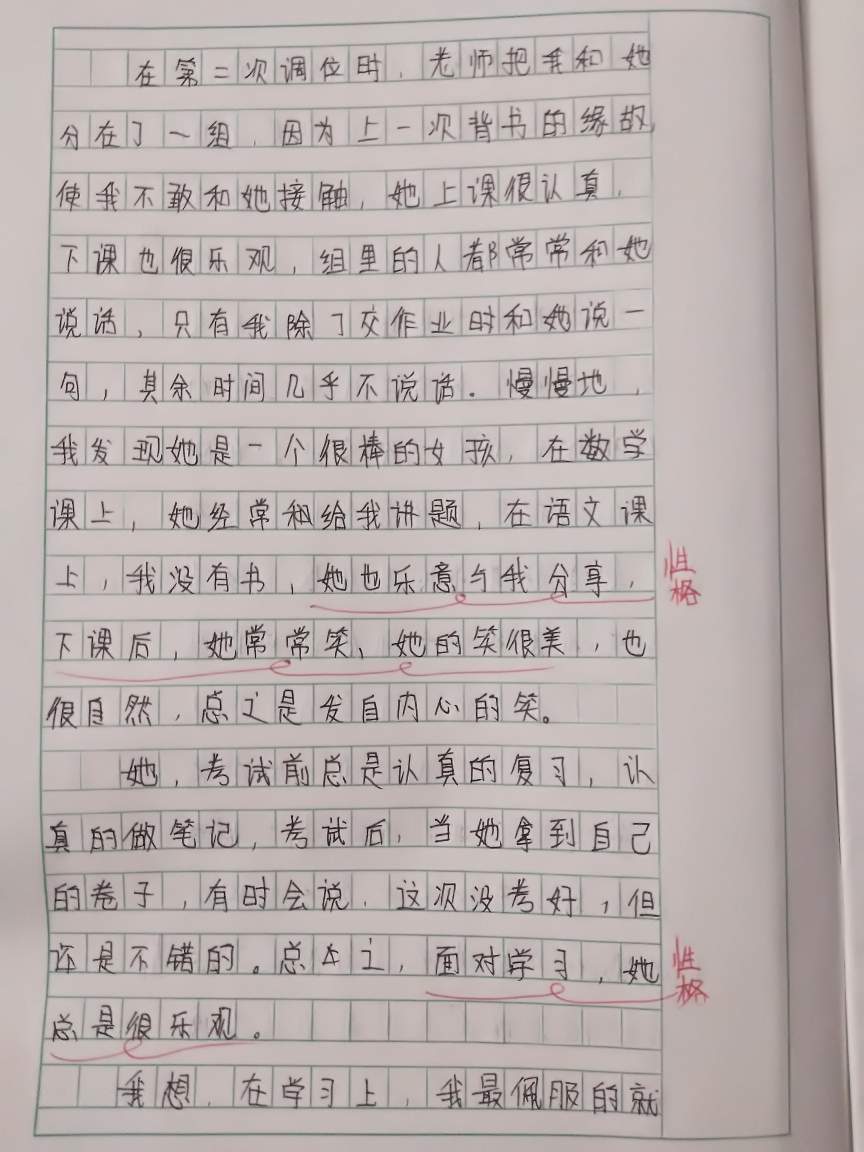 在第二次调位时，老师把我和她
分在了一组，因为上一次背书的缘故，
使我不敢和她接触，她上课很认真，
下课也很乐观，组里的人都常常和她
说话，只有我除了交作业时和她说一
句，其余时间几乎不说话。慢慢地，
我发现她是一个很棒的女孩，在数学
课上，她经常和给我讲题，在语文课
上，我没有书，她也乐意与我分享，
性格
下课后，她常常笑、她的笑很美，也
很自然，总之是发自内心的笑。
她，考试前总是认真的复习，认
真的做笔记，考试后，当她拿到自己
的卷子，有时会说，这次没考好，但
还是不错的。总之，面对学习，她
性格
总是很乐观。
我想，在学习上，我最佩服的就